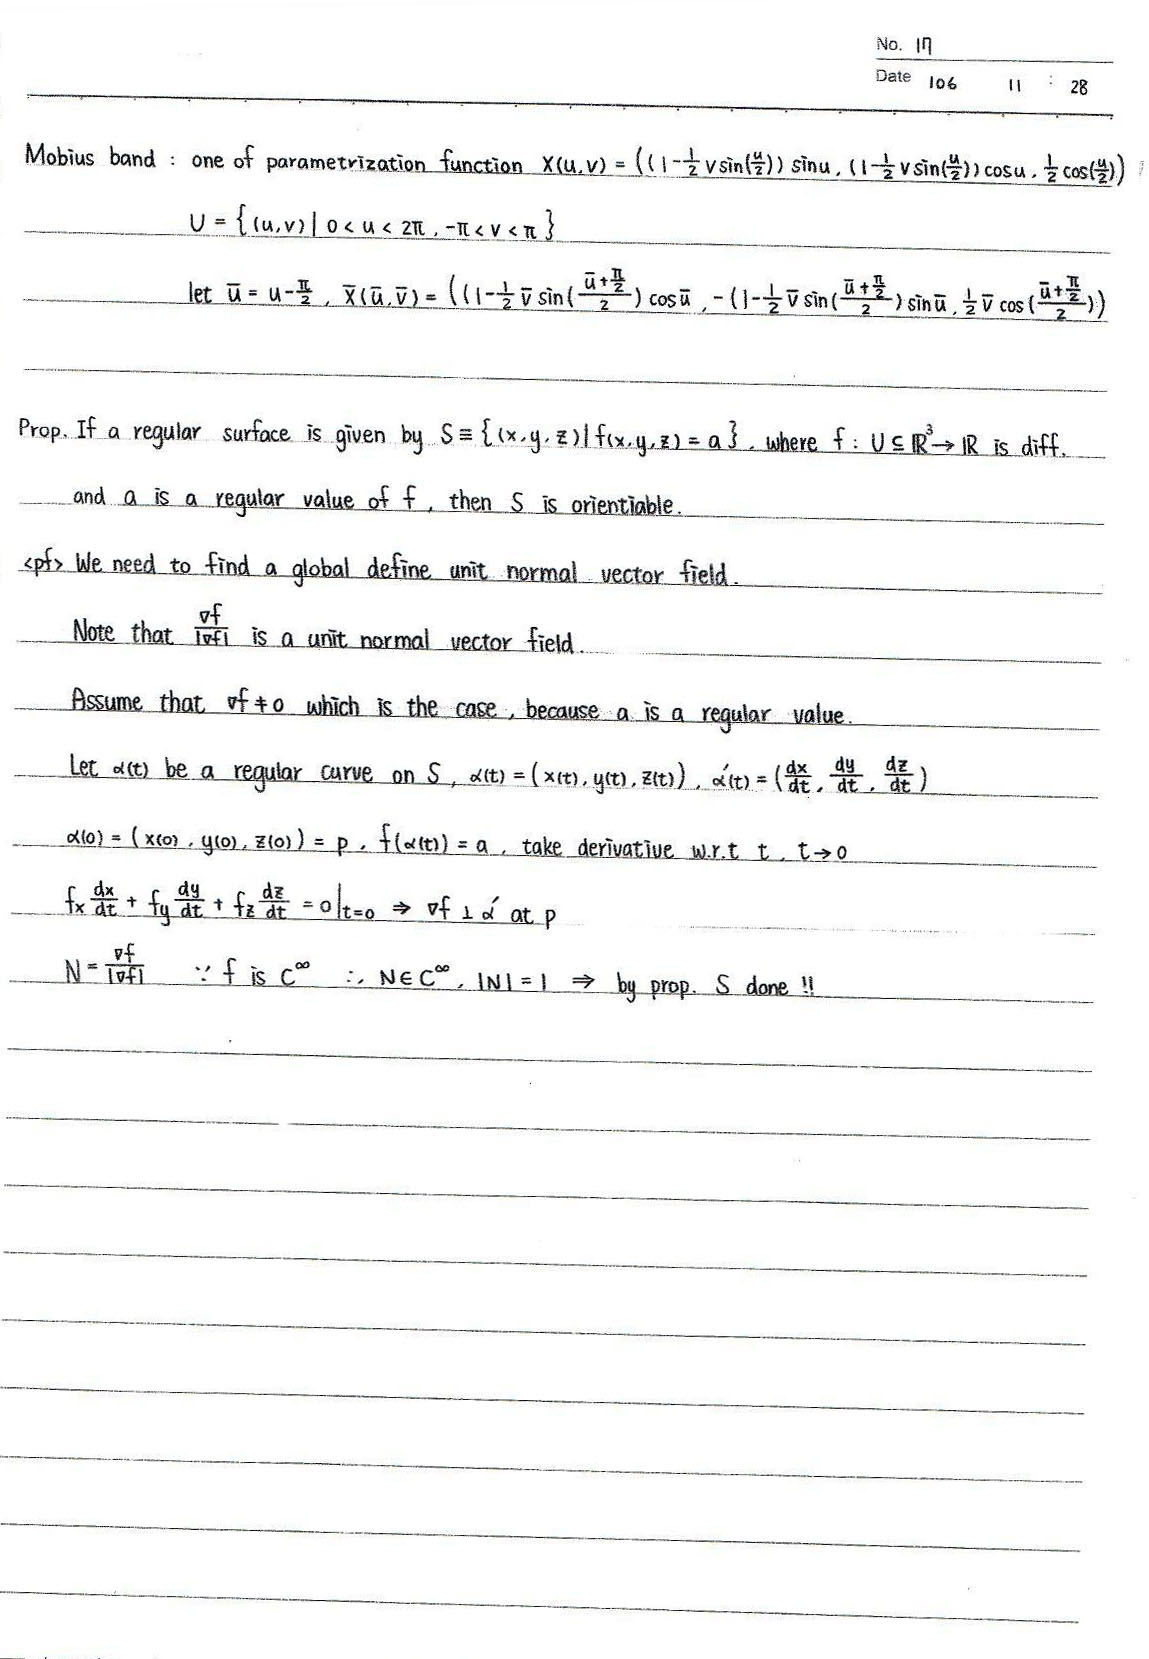 No. 17
Date 106 11 : 28
Mobius band : one of parametrization function X(u,v) = ((1-½ v sin(u/2)) sinu, (1-½ v sin(u/2)) cosu, ½ cos(u/2))
U = {(u,v) | 0 < u < 2π, -π < v < π}
let ū = u-π/2, X̄(ū,v̄) = ((1-½ v̄ sin((ū+π/2)/2) cosū, -(1-½ v̄ sin((ū+π/2)/2) sinū, ½ v̄ cos((ū+π/2)/2))
Prop. If a regular surface is given by S ≡ {(x,y,z) | f(x,y,z) = a}, where f : U ⊆ ℝ³ → ℝ is diff.
and a is a regular value of f, then S is orientiable.
<pf> We need to find a global define unit normal vector field.
Note that ∇f/|∇f| is a unit normal vector field.
Assume that ∇f ≠ 0 which is the case, because a is a regular value.
Let α(t) be a regular curve on S, α(t) = (x(t), y(t), z(t)), α'(t) = (dx/dt, dy/dt, dz/dt)
α(0) = (x(0), y(0), z(0)) = p, f(α(t)) = a, take derivative w.r.t t, t→0
fx dx/dt + fy dy/dt + fz dz/dt = 0|t=0 ⇒ ∇f ⊥ α' at p
N = ∇f/|∇f| ∵ f is C^∞ ∴ N ∈ C^∞, |N| = 1 ⇒ by prop. S done !!